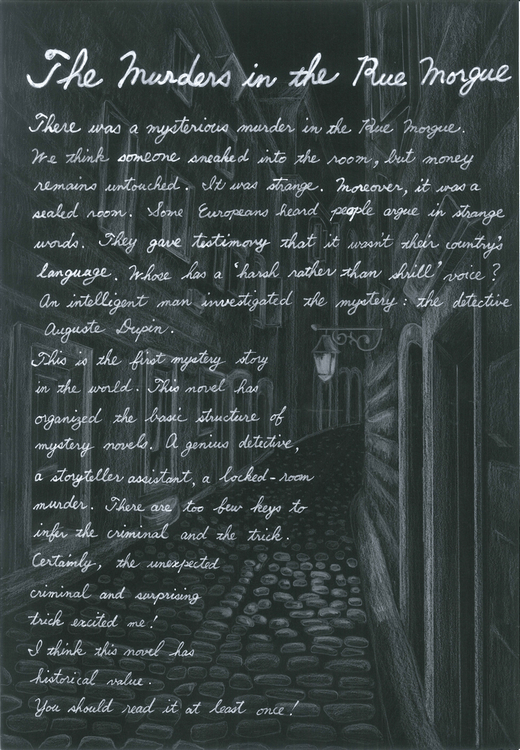 The Murders in the Rue Morgue
There was a mysterious murder in the Rue Morgue.
We think someone sneaked into the room, but money
remains untouched. It was strange. Moreover, it was a
sealed room. Some Europeans heard people argue in strange
words. They gave testimony that it wasn't their country's
language. Whose has a 'harsh rather than shrill' voice?
An intelligent man investigated the mystery: the detective
Auguste Dupin.
This is the first mystery story
in the world. This novel has
organized the basic structure of
mystery novels. A genius detective,
a storyteller assistant, a locked-room
murder. There are too few keys to
infer the criminal and the trick.
Certainly, the unexpected
criminal and surprising
trick excited me!
I think this novel has
historical value.
You should read it at least once!